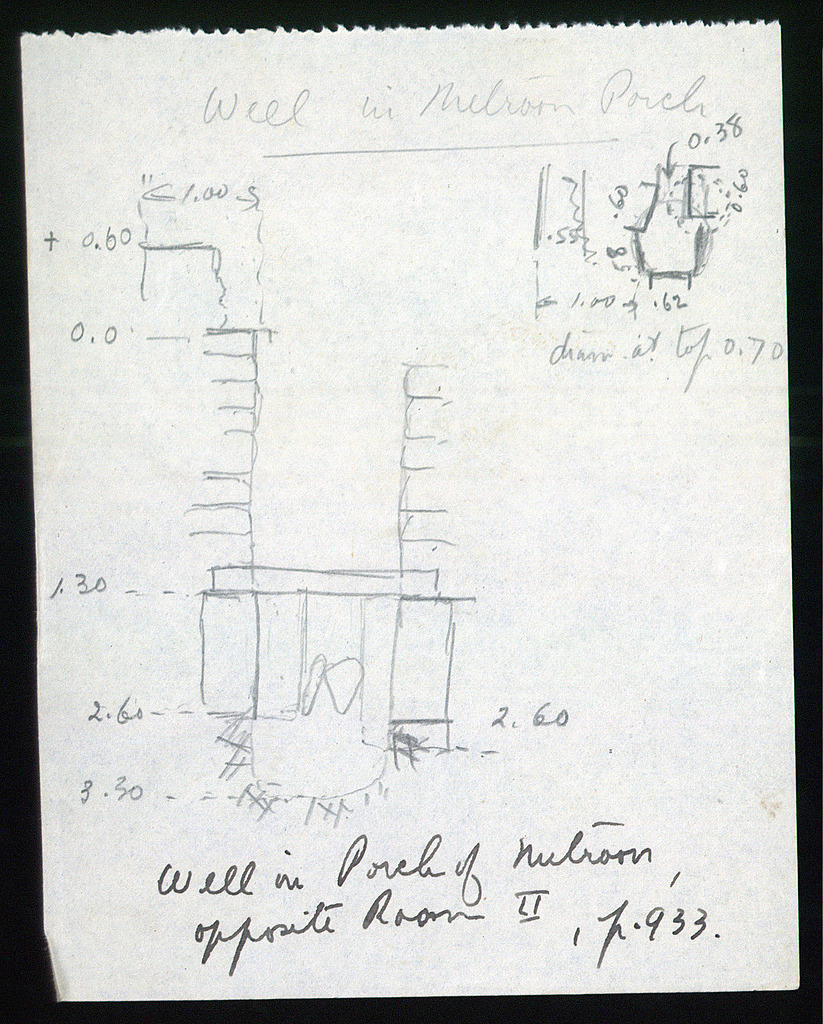 Well in Metroön Porch
0.38
1.00
.60
0.60
+ 0.60
.55
.85
1.00
.62
0.0
diam at top 0.70
1.30
2.60
2.60
3.30
Well in Porch of Metroön,
opposite Room II, p. 933.